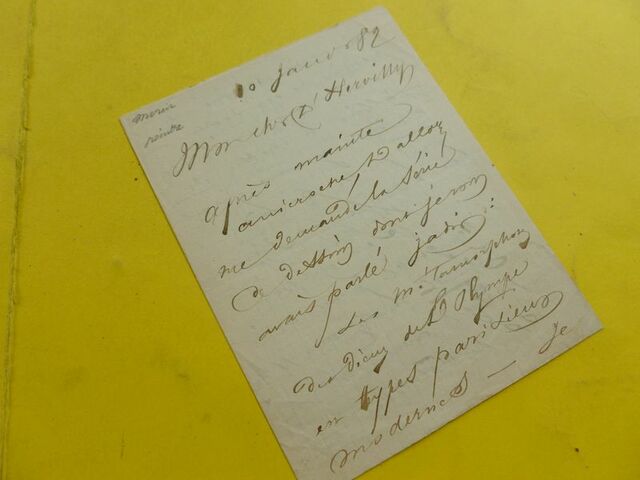 10 Janv 82
morin
peintre
Mon cher d'Hervilly
après mainte
anicroche, d'alloz
me demande la série
de dessins dont je vous
avais parlé jadis :
Les Métamorphoses
des dieux de l'Olympe
en types parisiens
modernes — Je